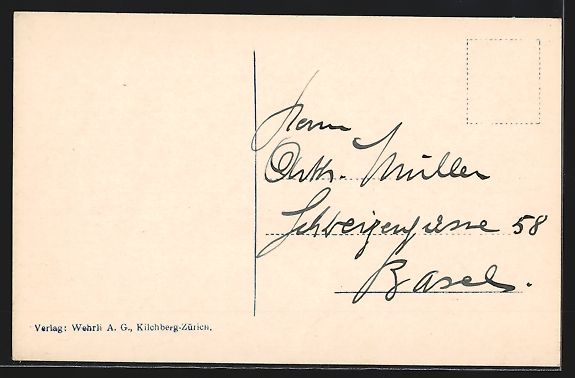 Herrn
Arth. Müller
Schweizergasse 58
Basel.
Verlag: Wehrli A. G., Kilchberg-Zürich.